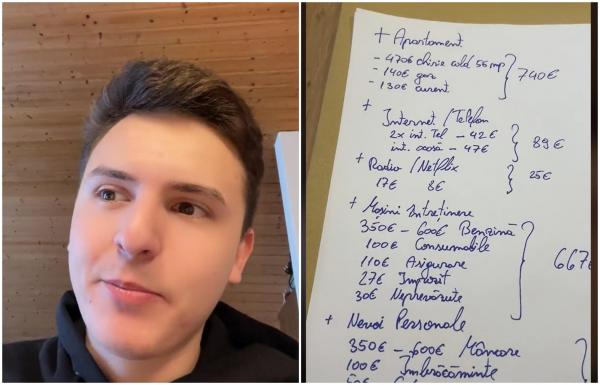 + Apartament
- 470€ chirie cold 56mp
- 140€ gaz
- 130€ curent
740€
+ Internet / Telefon
2x int. Tel - 42€
int. acasă - 47€
89€
+ Radio / Netflix
17€ 8€
25€
+ Mașini întreținere
350€ - 600€ Benzină
100€ Consumabile
110€ Asigurare
27€ Impozit
30€ Neprevăzute
667€
+ Nevoi Personale
350€ - 600€ Mâncare
100€ Îmbrăcăminte